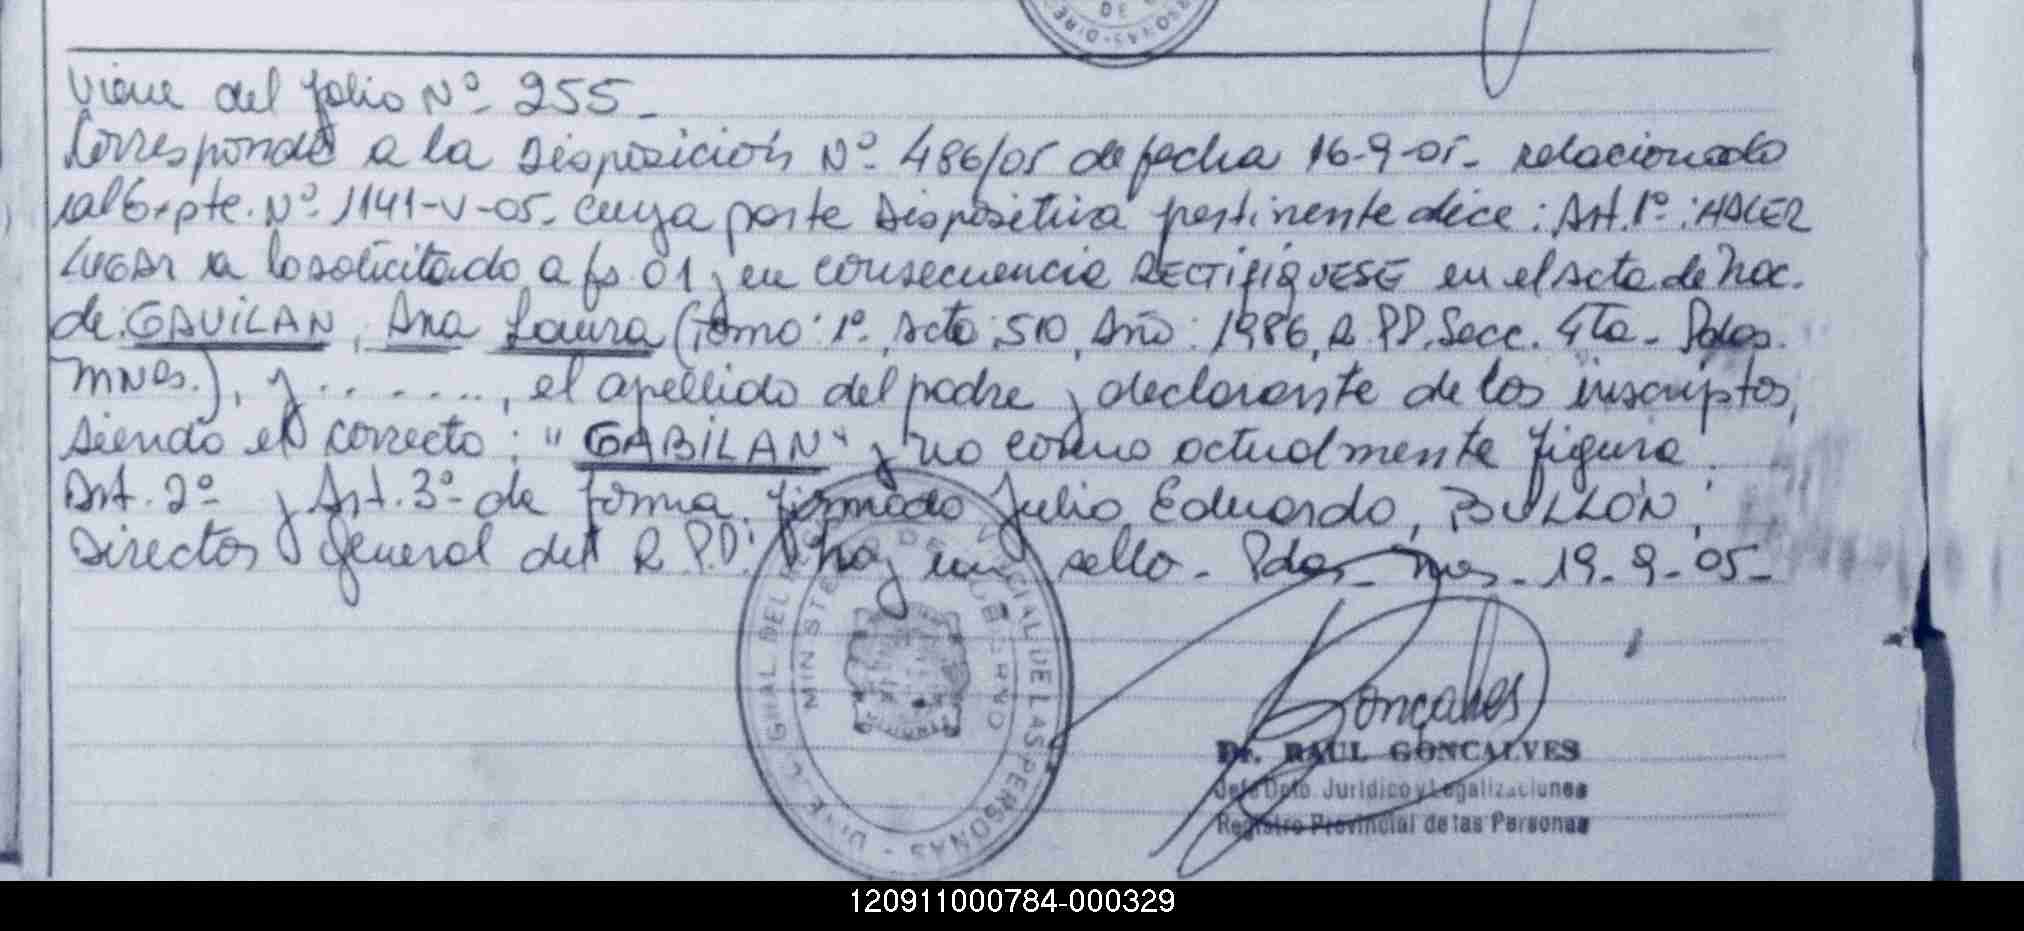 Viene del folio Nº 255_
Corresponde a la Disposición Nº 486/05 de fecha 16-9-05- relacionado
al Expte. Nº 1141-V-05- cuya parte Dispositiva pertinente dice: Art. 1º: HACER
LUGAR a lo solicitado a fs. 01 y en consecuencia RECTIFIQUESE en el Acta de Nac.
de: GAVILAN, Ana Laura (Tomo: 1º, Acto: 510, Año: 1986, R.P.P. Secc. 4ta- Pdas.
Mnes.), y ......., el apellido del padre y declarante de los inscriptos,
siendo el correcto: "GABILAN" y no como actualmente figura.
Art. 2º y Art. 3º- de forma. firmado Julio Eduardo, BULLÓN,
Director General del R.P.P. hay un sello - Pdas- Mnes- 19-9-05-
MINISTERIO DE GOBIERNO
PROVINCIAL DE LAS PERSONAS - DIRE
Goncalves
Dr. RAUL GONCALVES
Jefe Dpto. Jurídico y Legalizaciones
Registro Provincial de las Personas
120911000784-000329